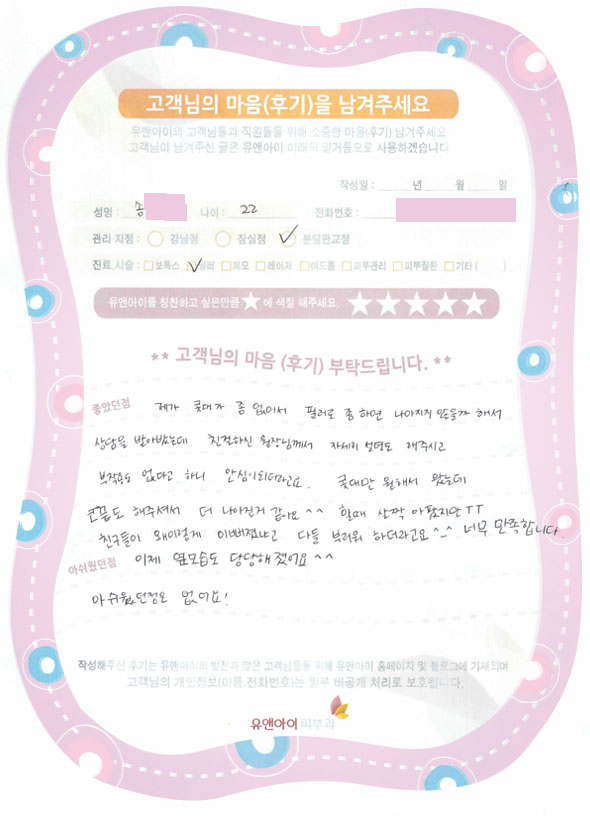 고객님의 마음(후기)을 남겨주세요
유앤아이의 고객님들과 직원들을 위해 소중한 마음(후기) 남겨주세요
고객님이 남겨주신 글은 유앤아이 미래의 밑거름으로 사용하겠습니다
작성일 : 년 월 일
성명 : 송 나이 : 22 전화번호 :
관리 지점 : 강남점 잠실점 분당판교점
진료,시술 : 보톡스 필러 제모 레이저 여드름 피부관리 피부질환 기타 ( )
유앤아이를 칭찬하고 싶은만큼 ★에 색칠 해주세요. ★★★★★
** 고객님의 마음 (후기) 부탁드립니다. **
좋았던점 제가 콧대가 좀 없어서 필러로 좀 하면 나아지지 않을까 해서
상담을 받아봤는데 친절하신 원장님께서 자세히 설명도 해주시고
부작용도 없다고 하니 안심이되더라고요. 콧대만 원해서 왔는데
코끝도 해주셔서 더 나아진거 같아요 ^^ 할때 살짝 아팠지만 TT
친구들이 왜이렇게 이뻐졌냐고 다들 부러워 하더라고요 ^_^ 너무 만족합니다.
아쉬웠던점 이제 옆모습도 당당해졌어요 ^^
아쉬웠던점은 없어요!
작성해주신 후기는 유앤아이의 발전과 많은 고객님들을 위해 유앤아이 홈페이지 및 블로그에 기재되며
고객님의 개인정보(이름,전화번호)는 일부 비공개 처리로 보호됩니다.
유앤아이피부과